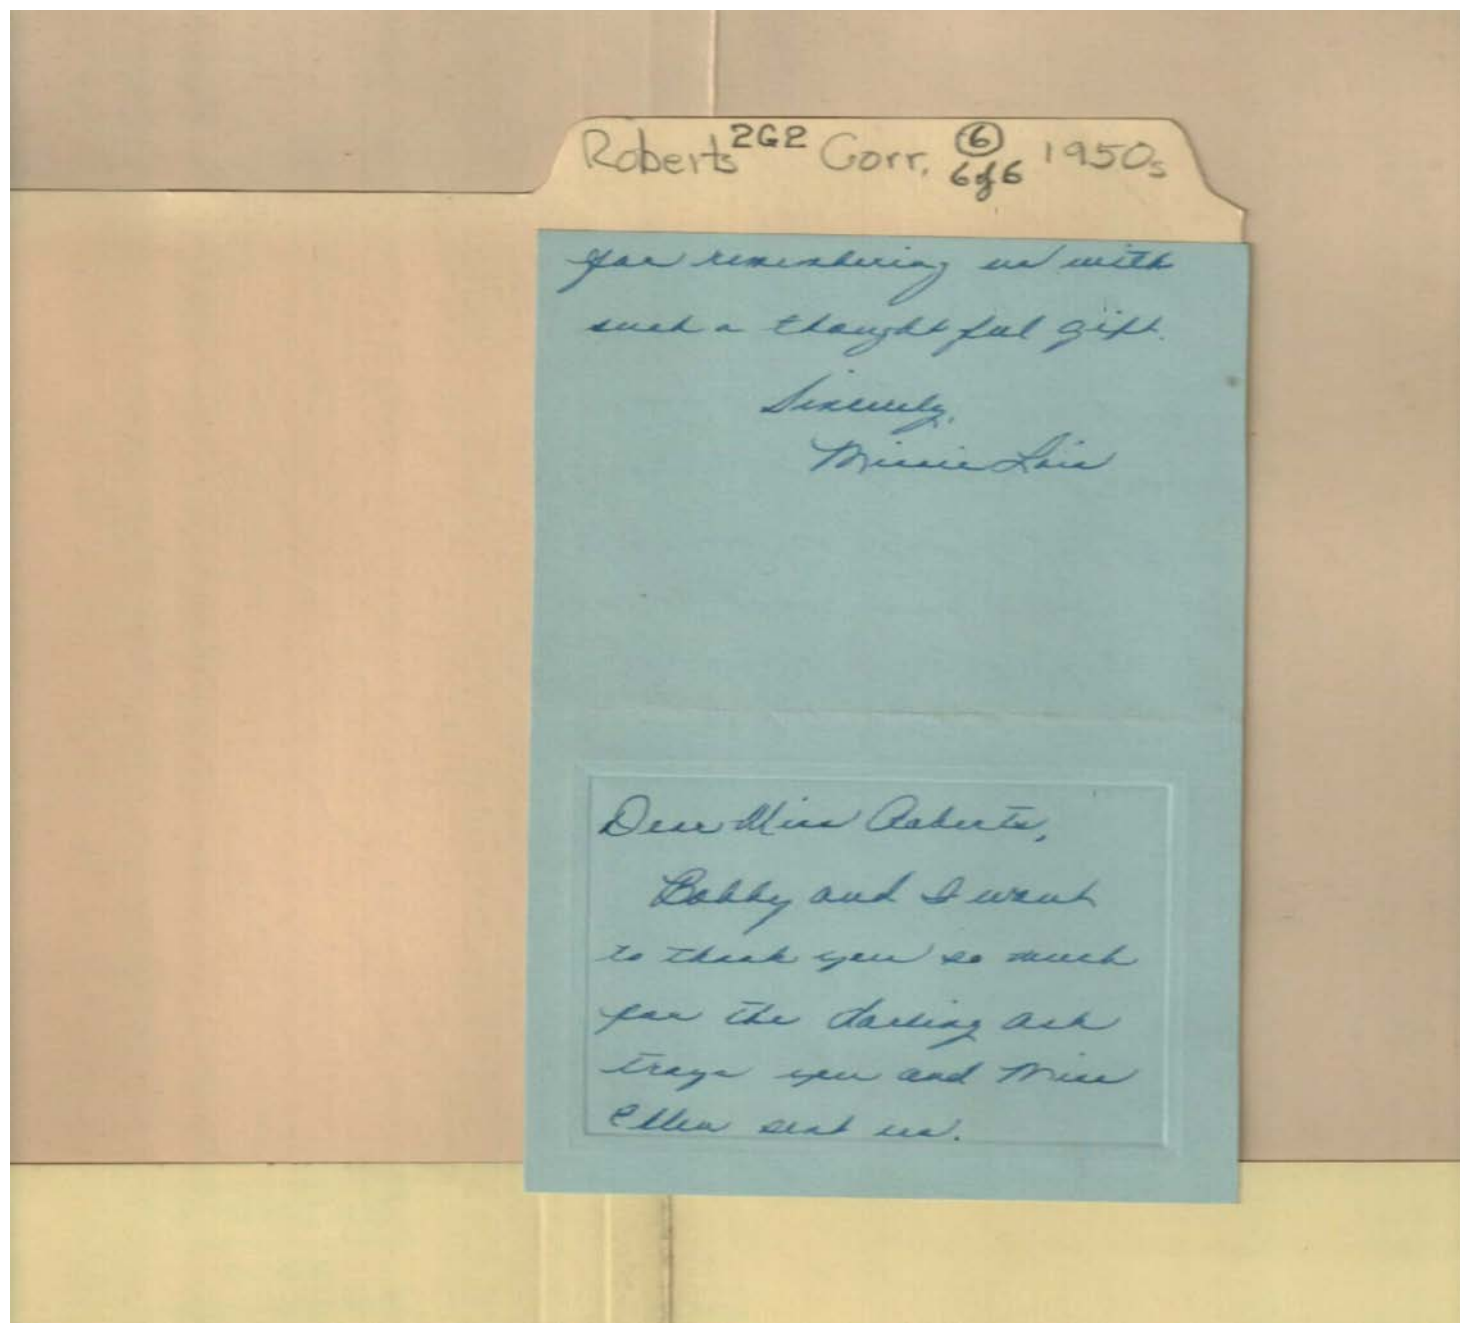 Roberts 2G2 Corr. 6 1950s
6 of 6
for remembering us with
such a thoughtful gift.
Sincerely,
Minnie Lois
Dear Miss Roberts,
Bobby and I want
to thank you so much
for the darling ash
trays you and Miss
Ellen sent us.